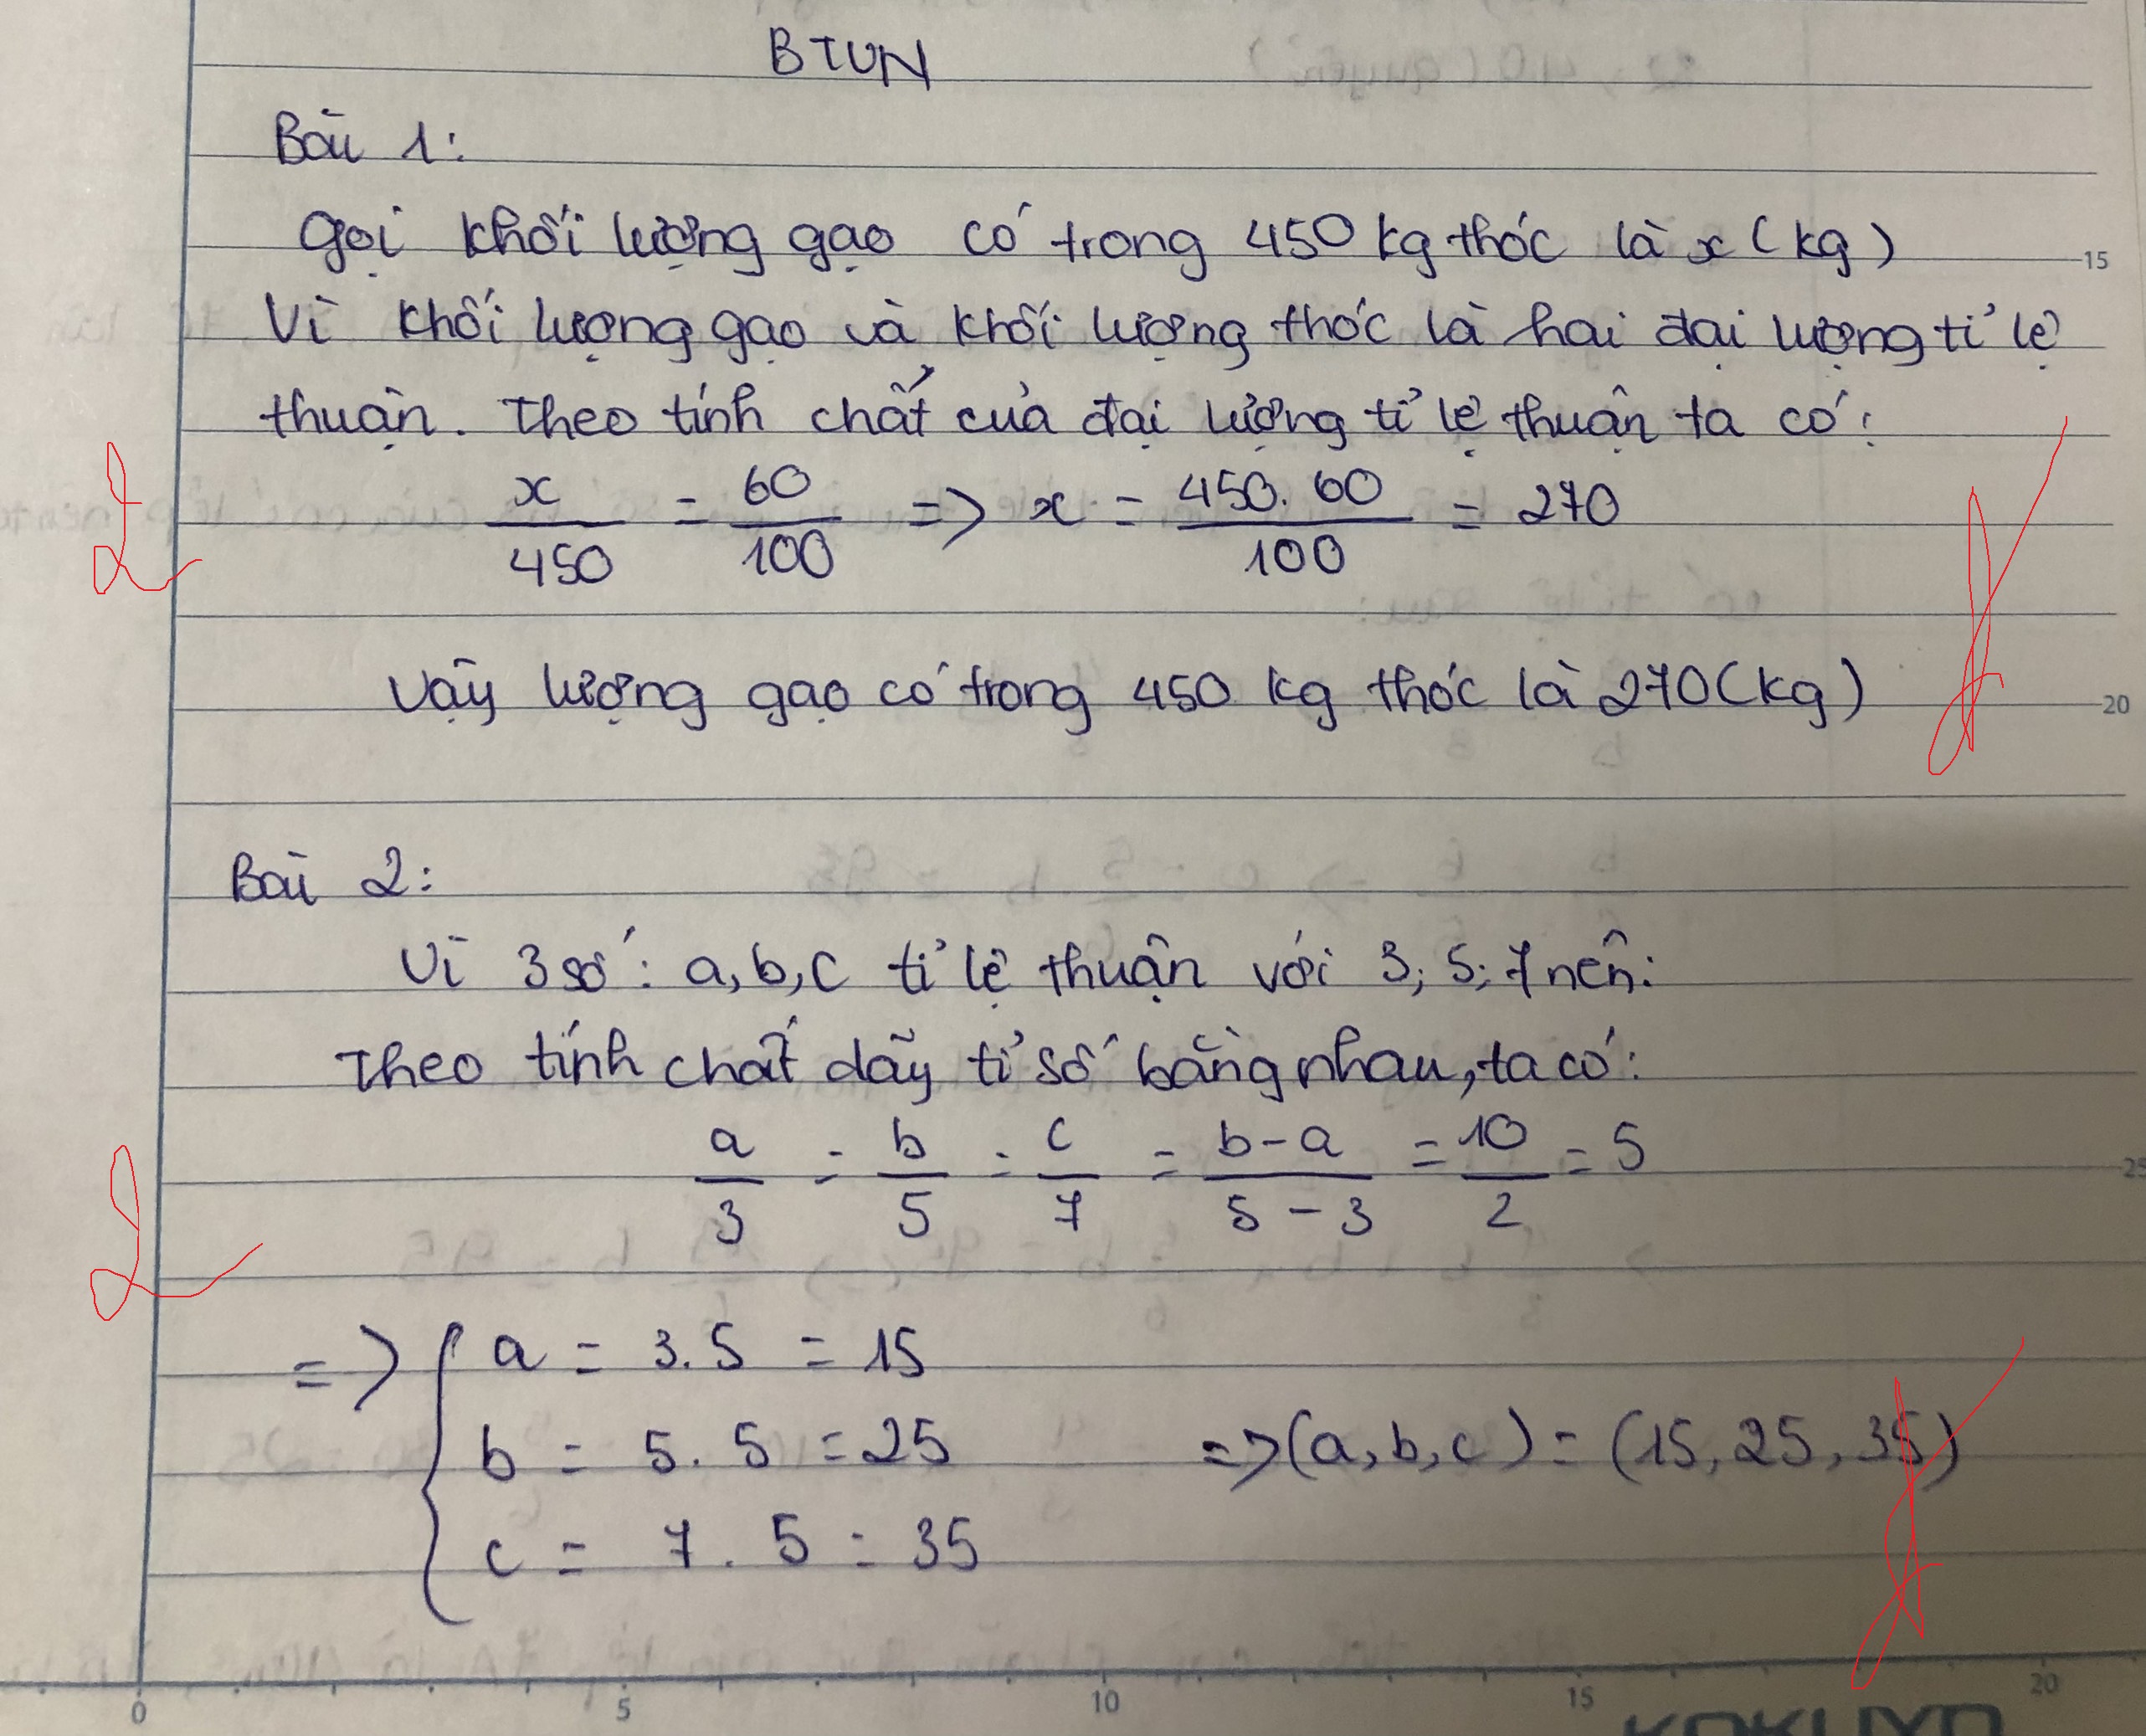 BTVN
Bài 1:
Gọi khối lượng gạo có trong 450 kg thóc là x (kg)
15
Vì khối lượng gạo và khối lượng thóc là hai đại lượng tỉ lệ
thuận. Theo tính chất của đại lượng tỉ lệ thuận ta có:
x/450 = 60/100 => x = 450.60/100 = 270
2
Đ
Vậy lượng gạo có trong 450 kg thóc là 270 (kg)
20
Bài 2:
Vì 3 số: a, b, c tỉ lệ thuận với 3; 5; 7 nên:
Theo tính chất dãy tỉ số bằng nhau, ta có:
a/3 = b/5 = c/7 = b-a/5-3 = 10/2 = 5
25
2
=> { a = 3.5 = 15
b = 5.5 = 25 => (a, b, c) = (15, 25, 35)
c = 7.5 = 35
Đ
0 5 10 15 20
KOKUYO